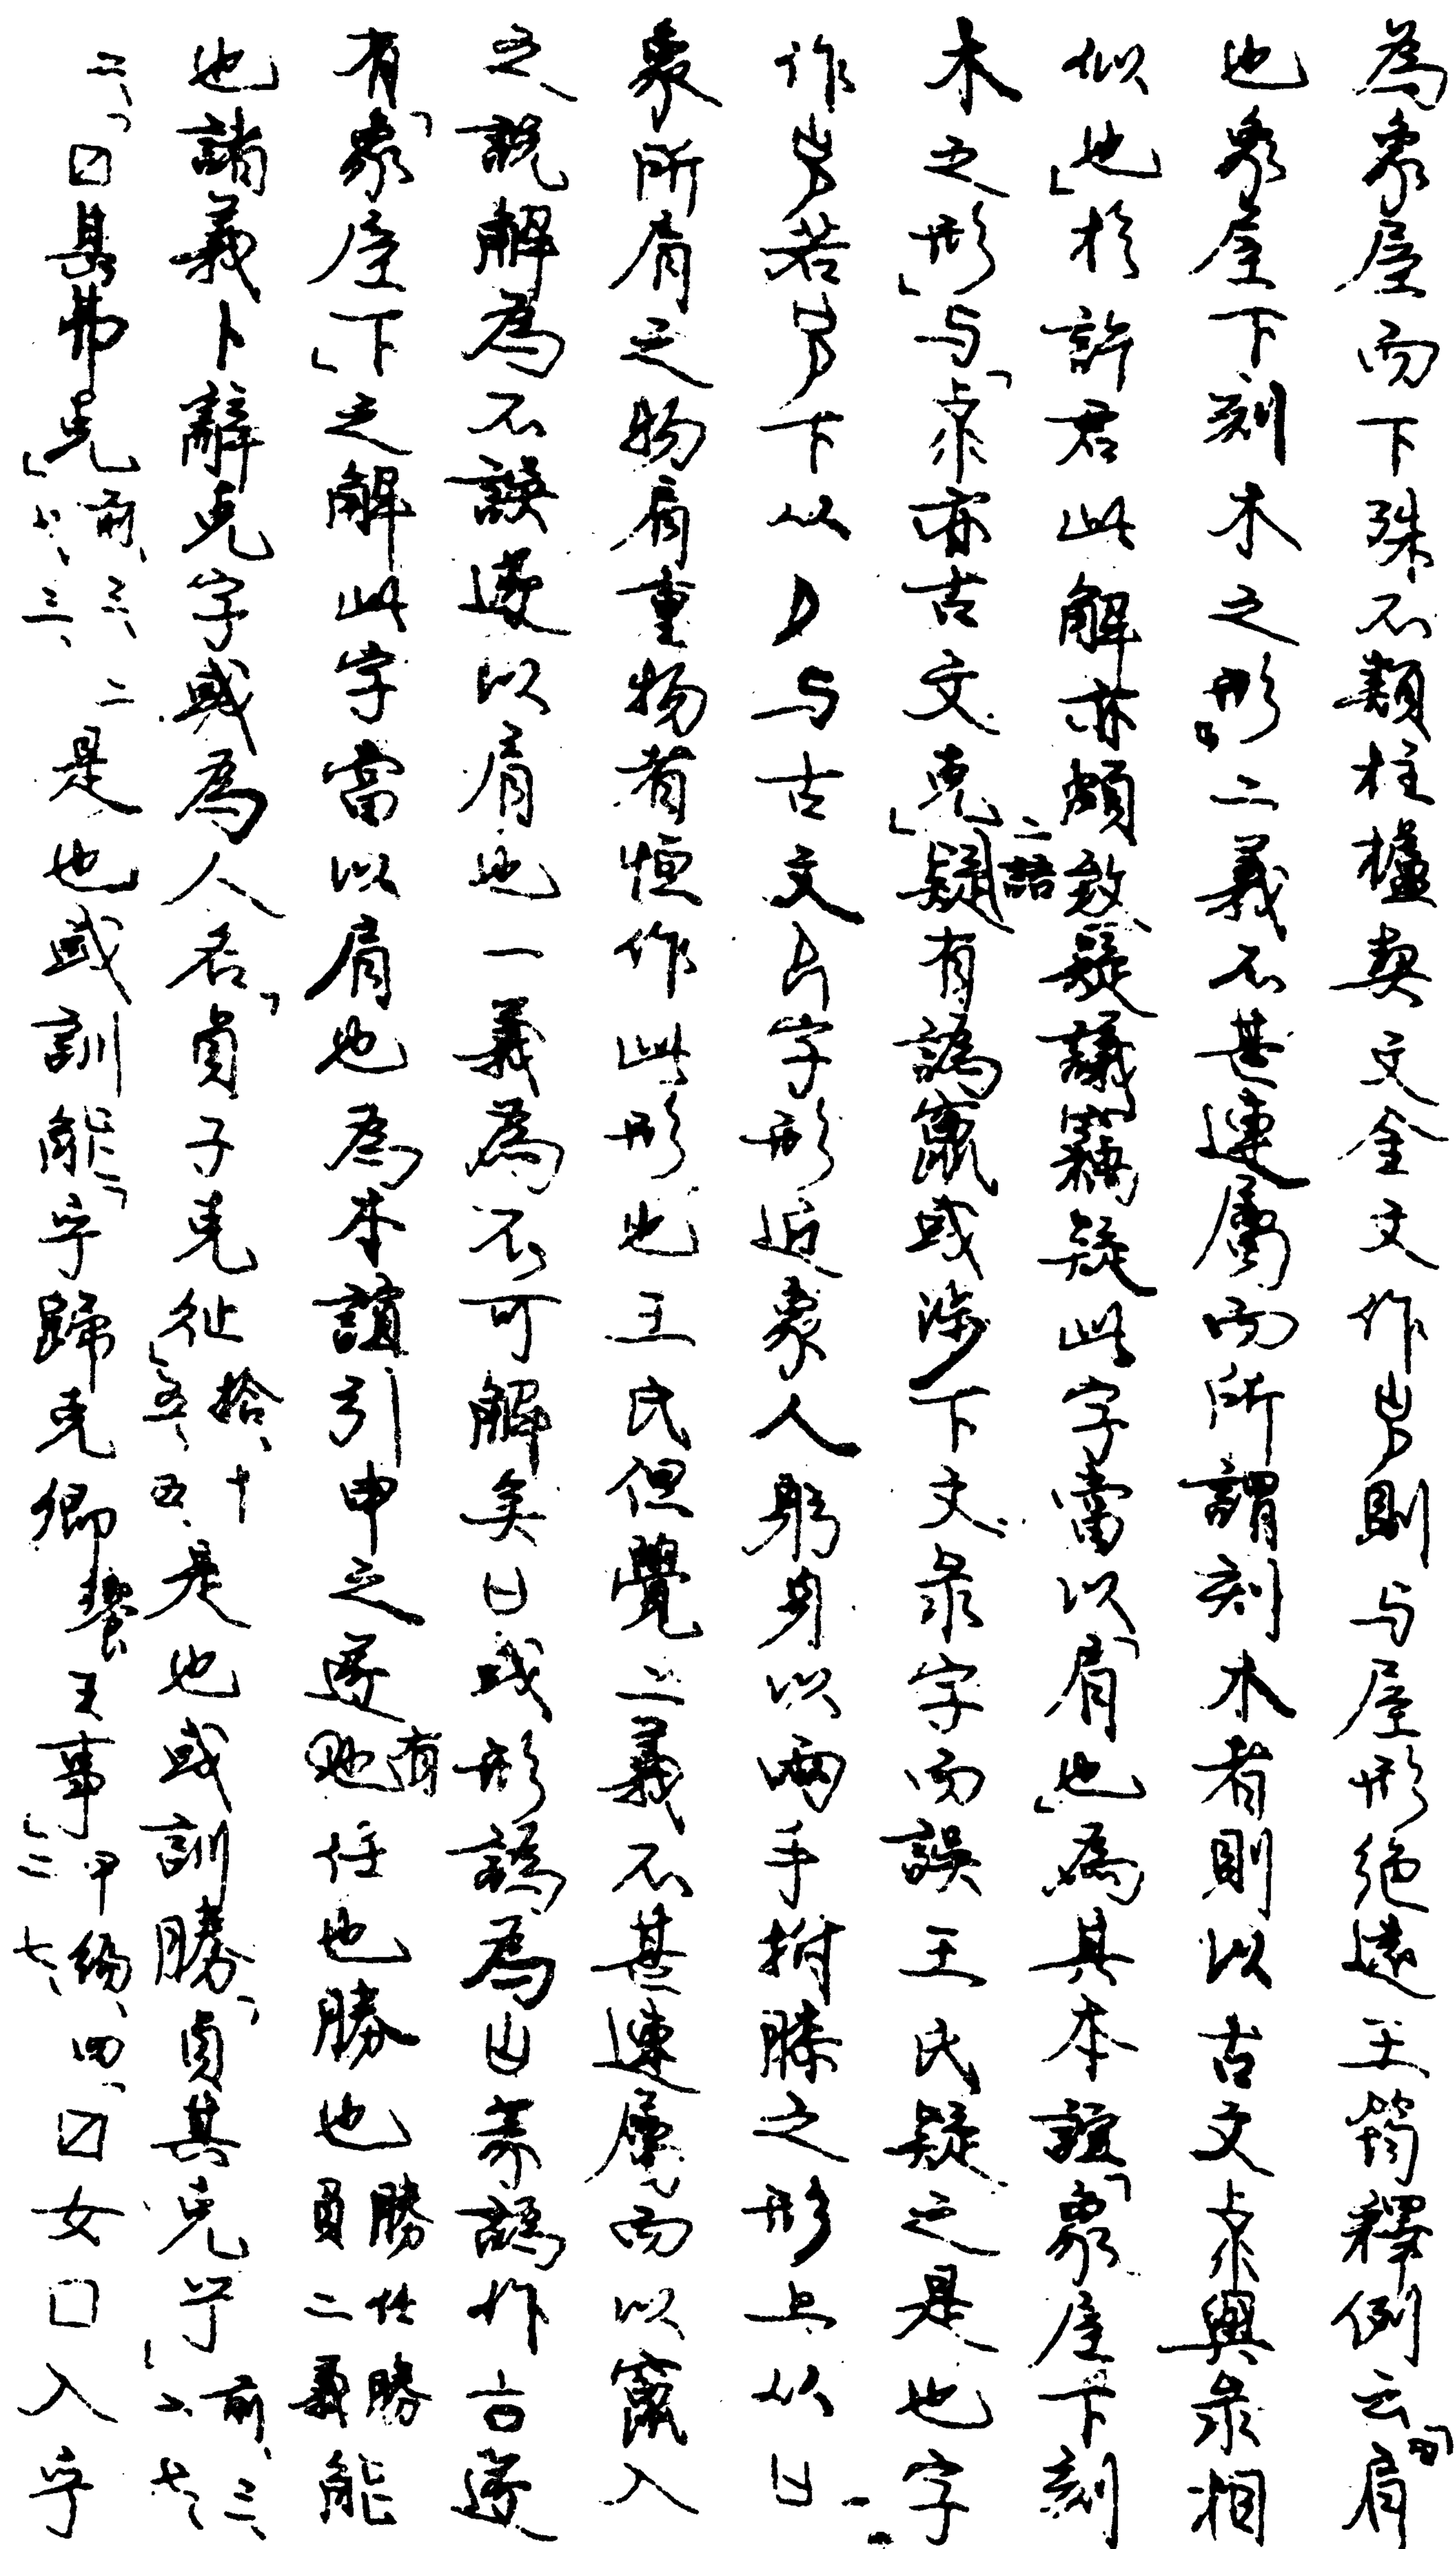 為象屋而下殊不類柱櫨契文金文作則与屋形絕遠王筠釋例云「肩
也象屋下刻木之形」二義不甚連屬而所謂刻木者則以古文與彔相
似也」於許君此解亦頗致疑議竊疑此字當以「肩也」為其本誼「象屋下刻
木之形」与「亦古文克」二語疑有譌竄或涉下文彔字而誤王氏疑之是也字
作若下从与古文字形近象人躬身以兩手拊膝之形上从凵
象所肩之物肩重物者恒作此形也王氏但覺二義不甚連屬而以竄入
之說解為不誤遂以肩也一義為不可解矣凵或形譌為山旁譌作古遂
有「象屋下」之解此字當以肩也為本誼引申之遂有任也勝也勝任勝員二義能
也諸義卜辭克字或為人名「貞子克徙」拾、十五、五、是也或訓勝「貞其克」前、三、二七、六
二、「囗其弗克」前、三、二七、三、二是也或訓能「乎歸克鄉王事」甲編、四二七、「囗女囗入乎